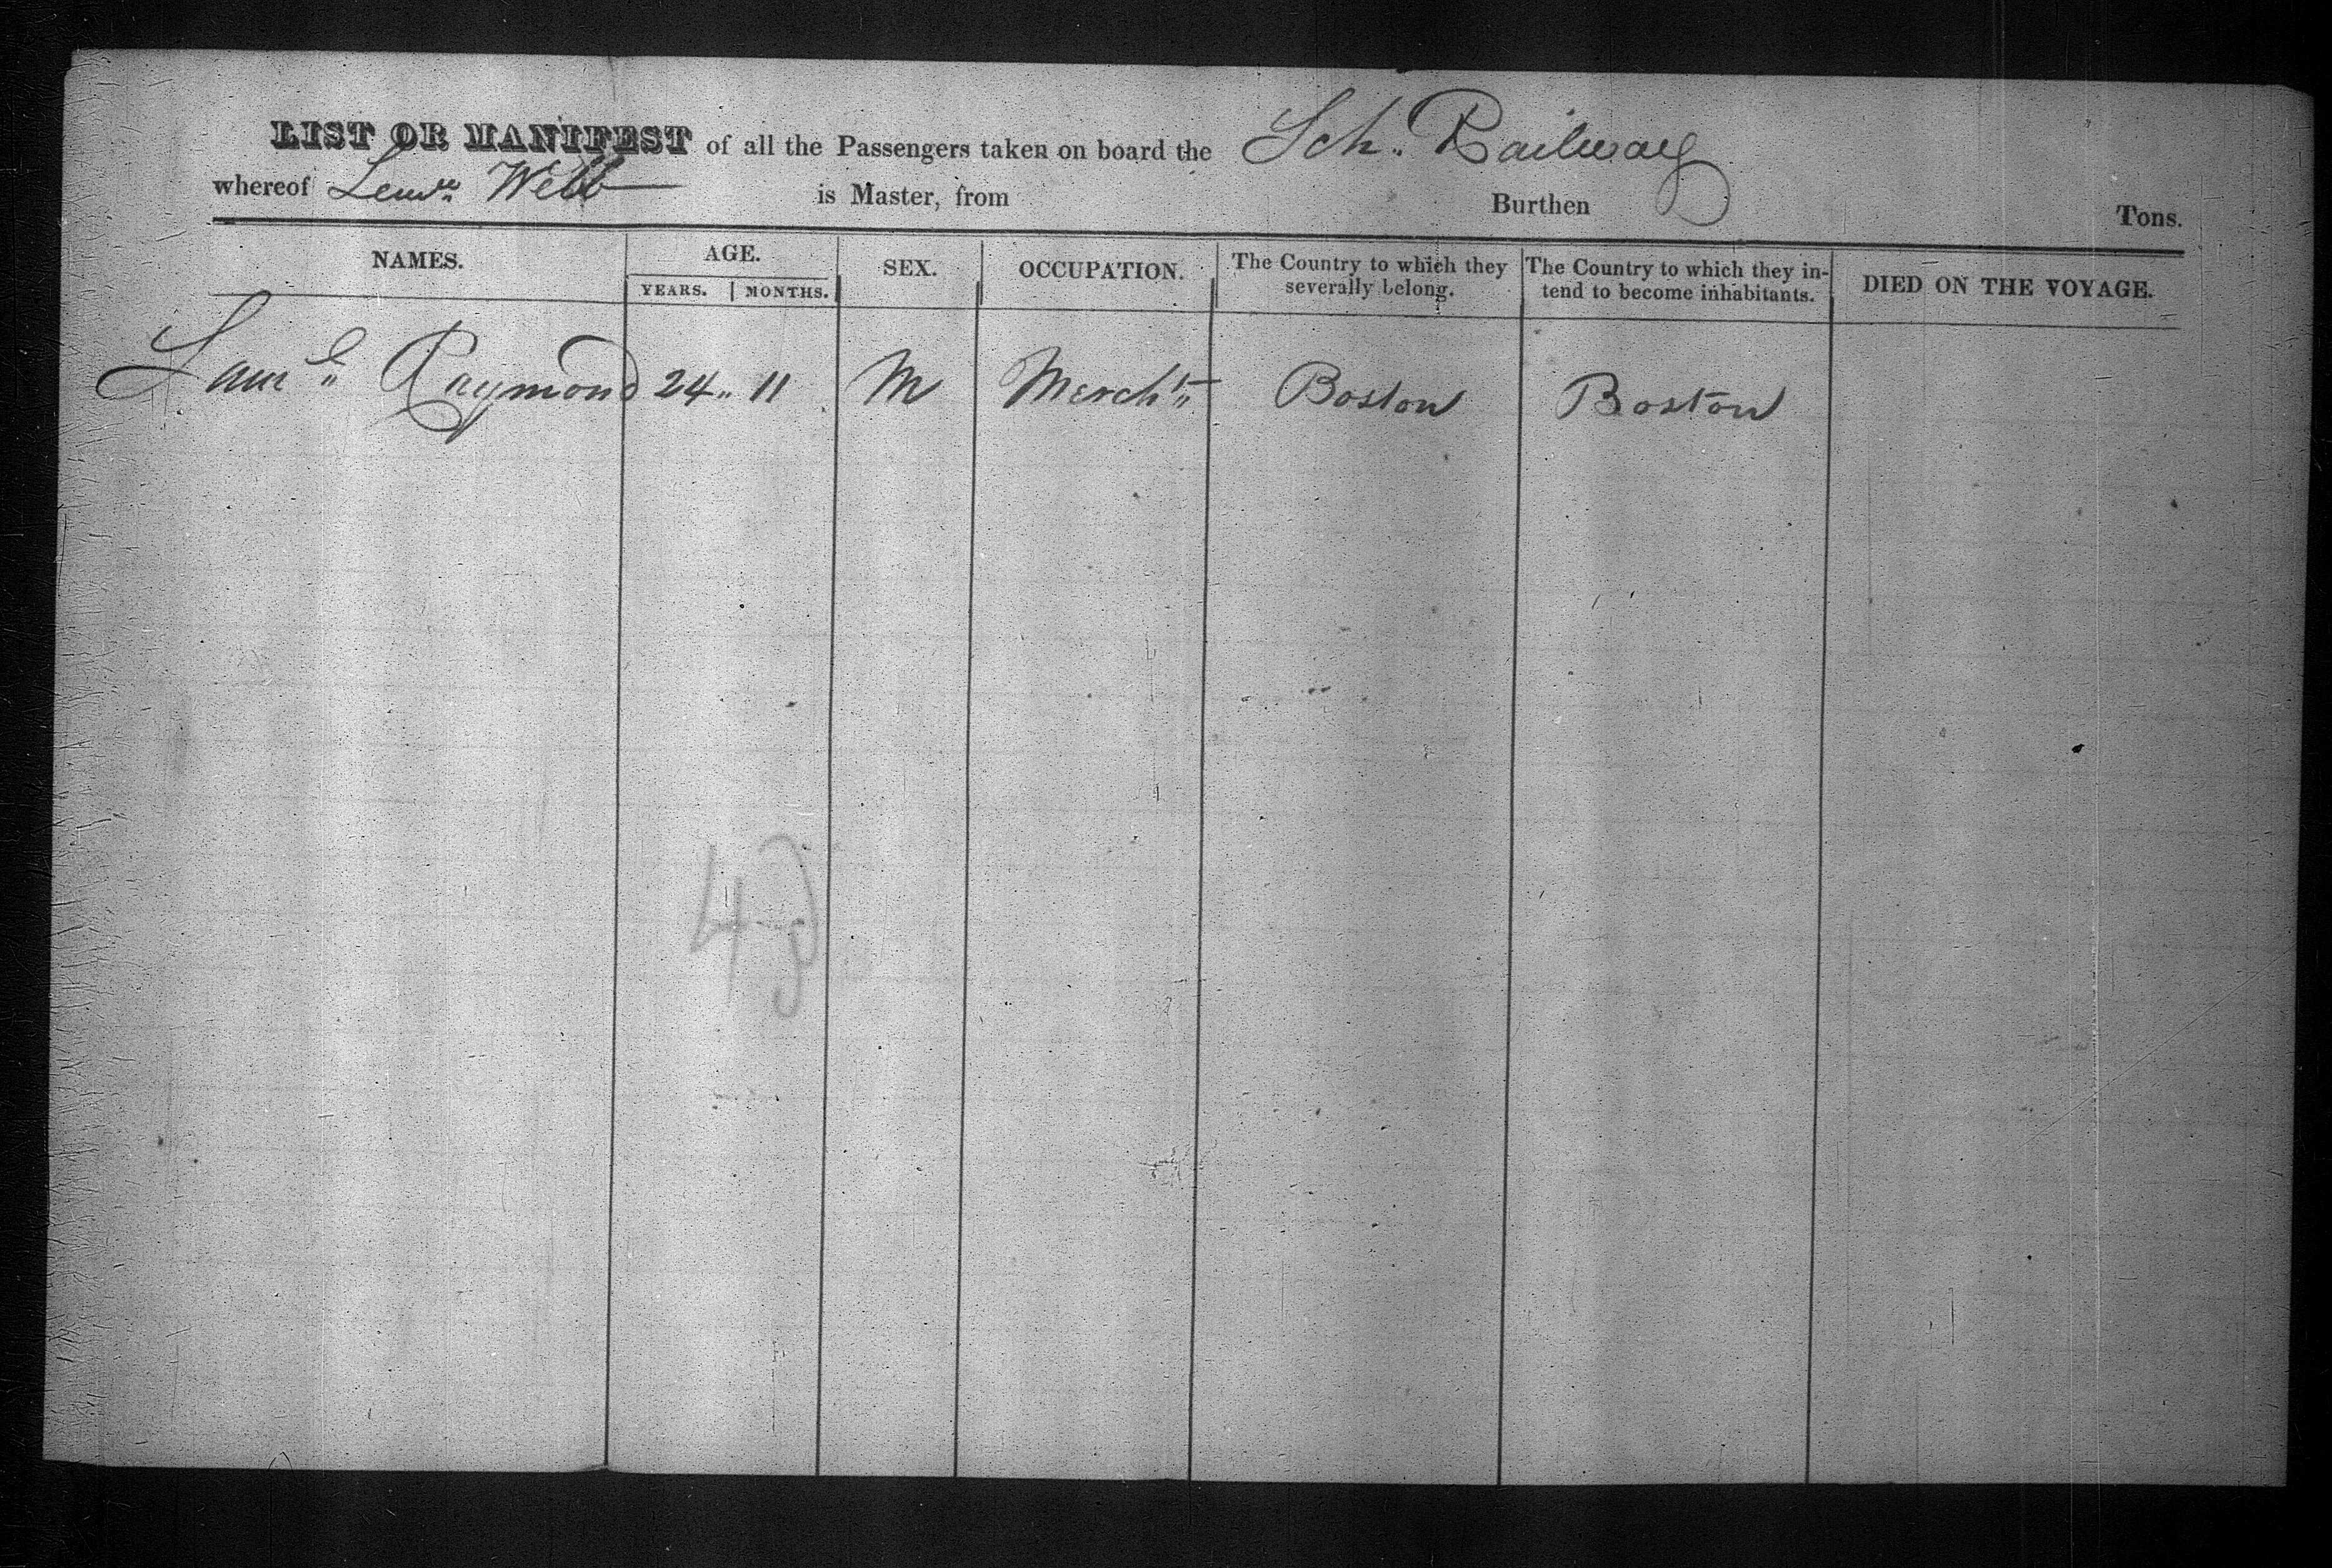 LIST OR MANIFEST of all the Passengers taken on board the Sch. Railway
whereof Webb is Master, from Burthen Tons.
NAMES. AGE. SEX. OCCUPATION. The Country to which they severally belong. The Country to which they in-tend to become inhabitants. DIED ON THE VOYAGE.
YEARS. MONTHS.
Saml Raymond 24 11 M Mercht Boston Boston
49